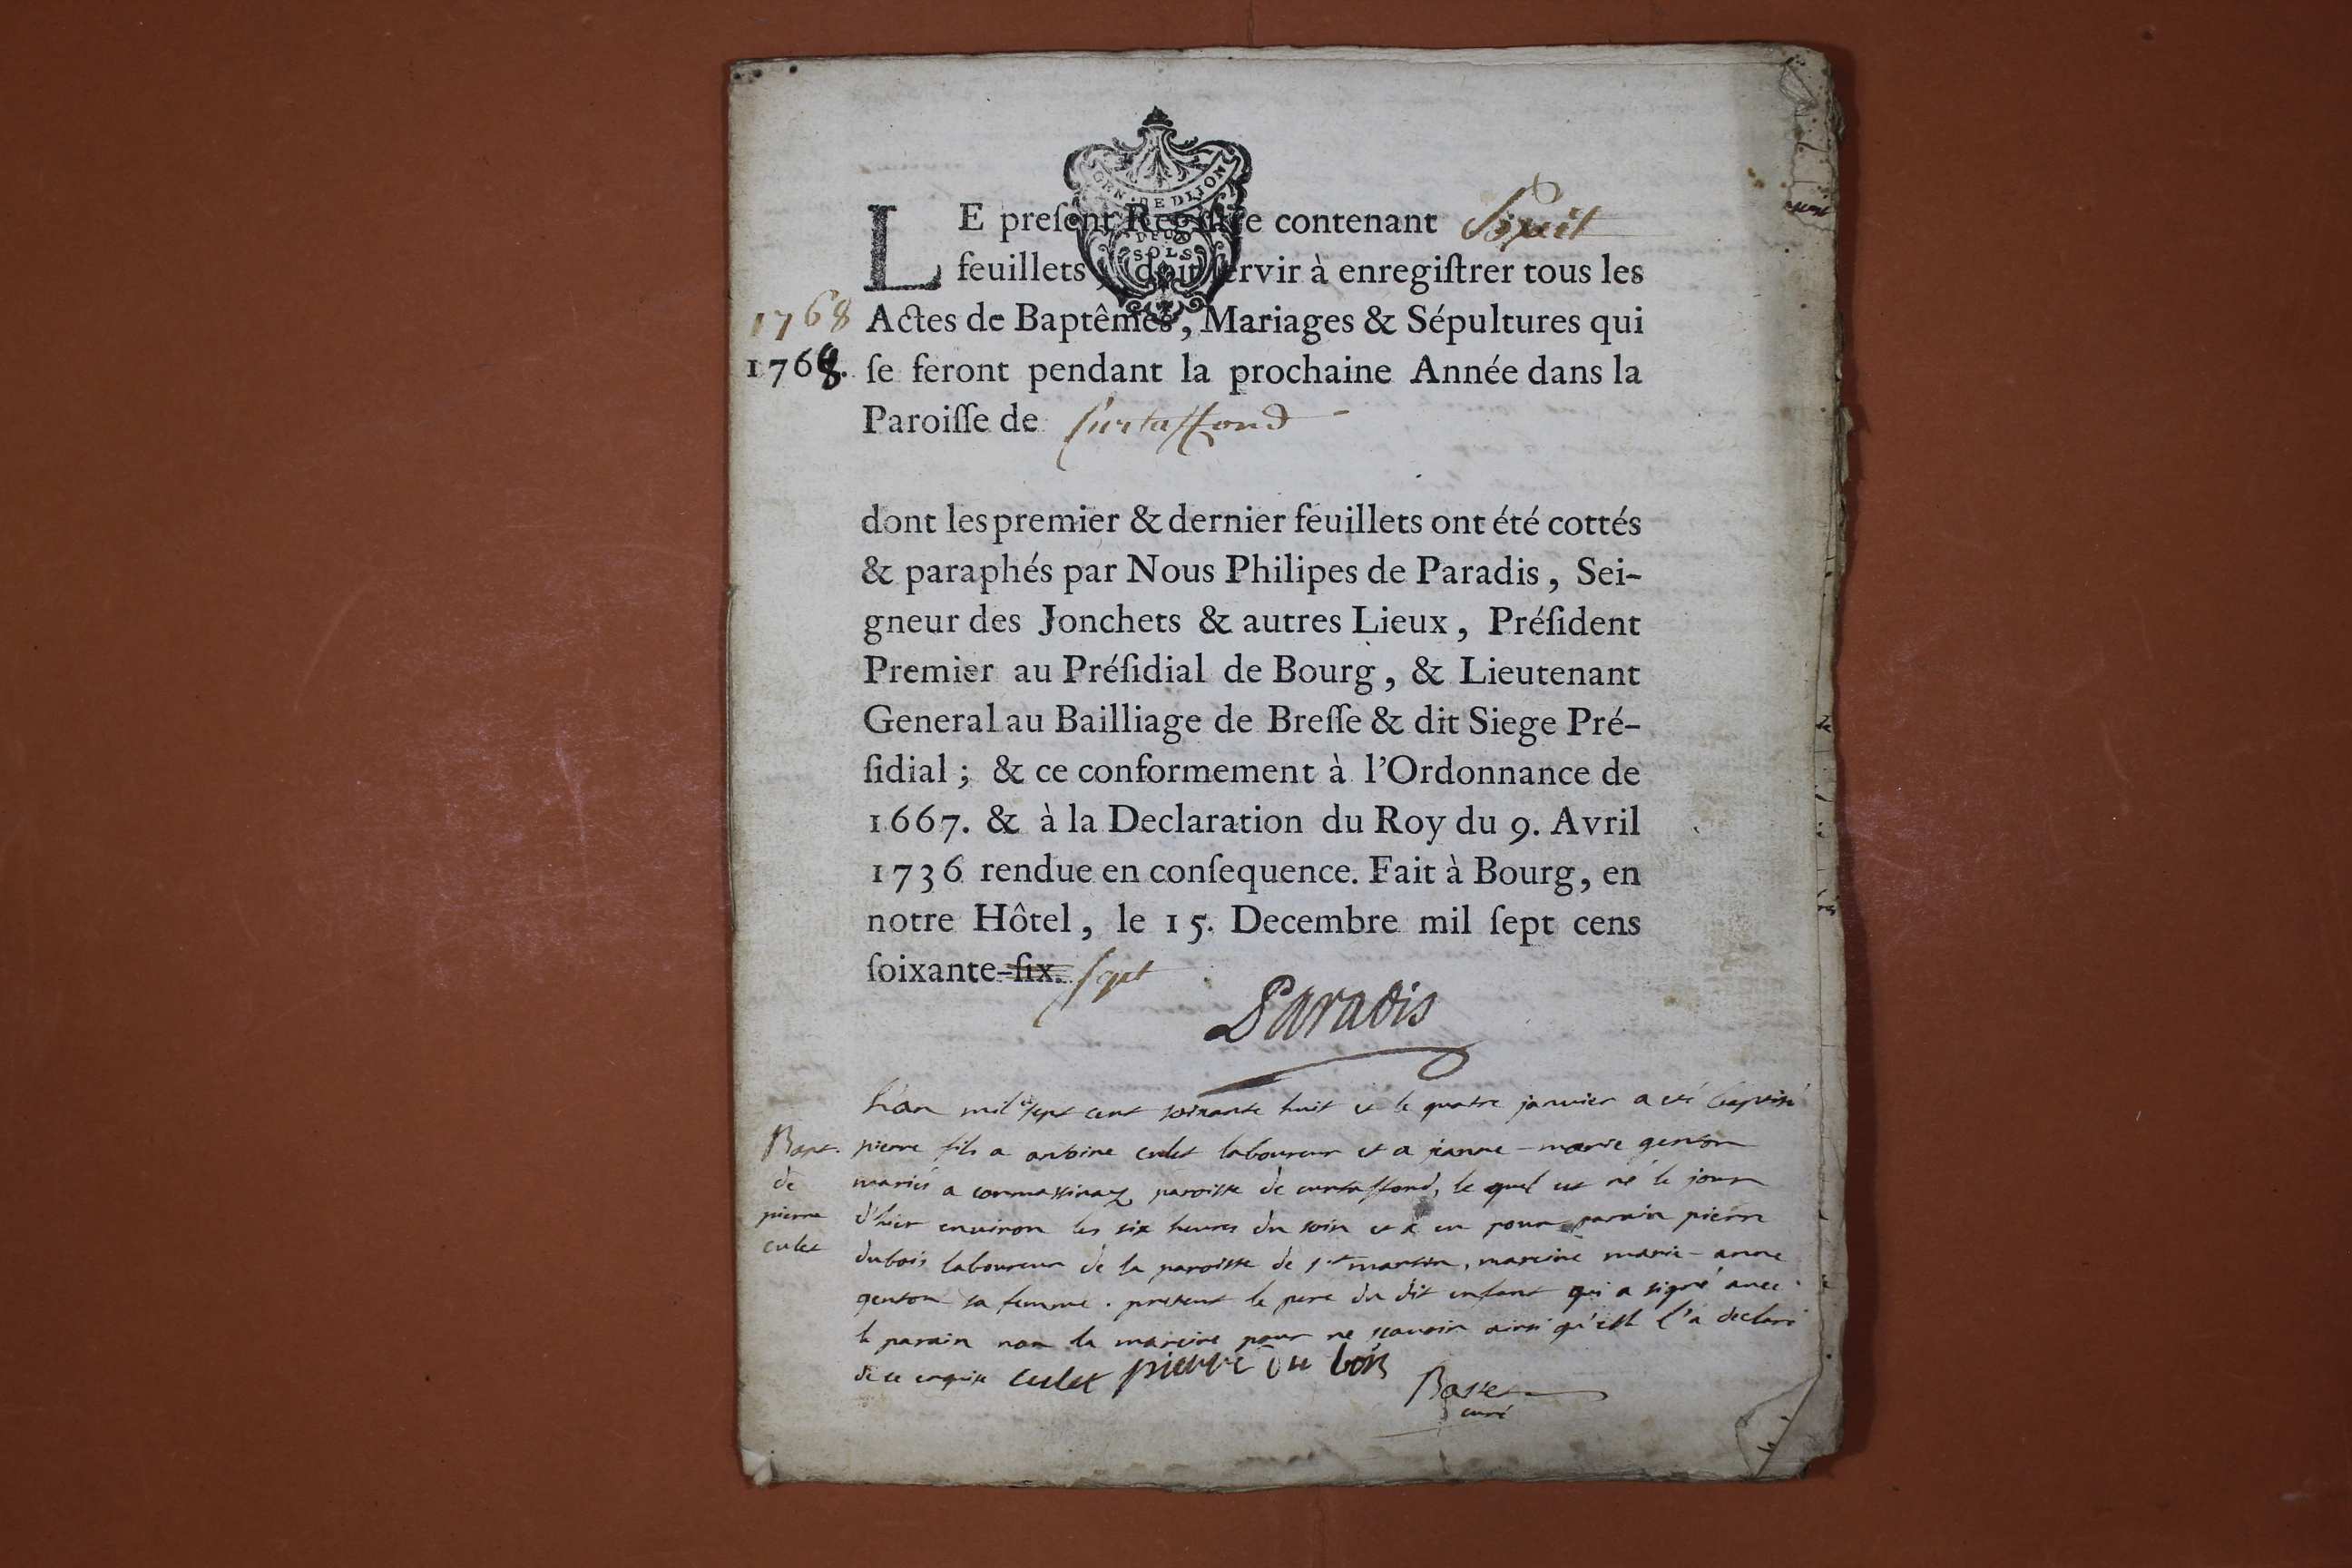 GEN. DE DIJON
DEUX
SOLS
LE preſent Regiſtre contenant
feuillets, doit ſervir à enregiſtrer tous les
1768
Actes de Baptêmes, Mariages & Sépultures qui
1768. ſe feront pendant la prochaine Année dans la
Paroiſſe de Curtaffond
dont les premier & dernier feuillets ont été cottés
& paraphés par Nous Philipes de Paradis, Sei-
gneur des Jonchets & autres Lieux, Préſident
Premier au Préſidial de Bourg, & Lieutenant
General au Bailliage de Breſſe & dit Siege Pré-
ſidial; & ce conformement à l'Ordonnance de
1667. & à la Declaration du Roy du 9. Avril
1736 rendue en conſequence. Fait à Bourg, en
notre Hôtel, le 15. Decembre mil ſept cens
ſoixante-ſix. sept
Paradis
Bapt.
de
pierre
culet
L'an mil sept cent soixante huit et le quatre janvier a été baptisé
pierre fils a antoine culet laboureur et a jeanne-marie genton
mariés a cormassinay paroisse de curtaffond, le quel est né le jour
d'hier environ les six heures du soir et a eu pour parain pierre
dubois laboureur de la paroisse de st martin, mareine marie-anne
genton sa femme. present le pere du dit enfant qui a signé avec
le parain non la mareine pour ne scavoir ainsi qu'elle l'a declaré
de ce enquise culet pierre du bois
Basset
curé